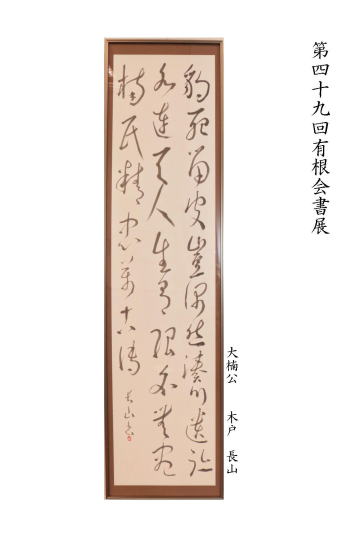 第四十九回有根会書展
大楠公 木戸 長山
豹死留皮豈偶然湊川遺跡
水連天人生有限名無盡
楠氏精忠萬古傳 長山書